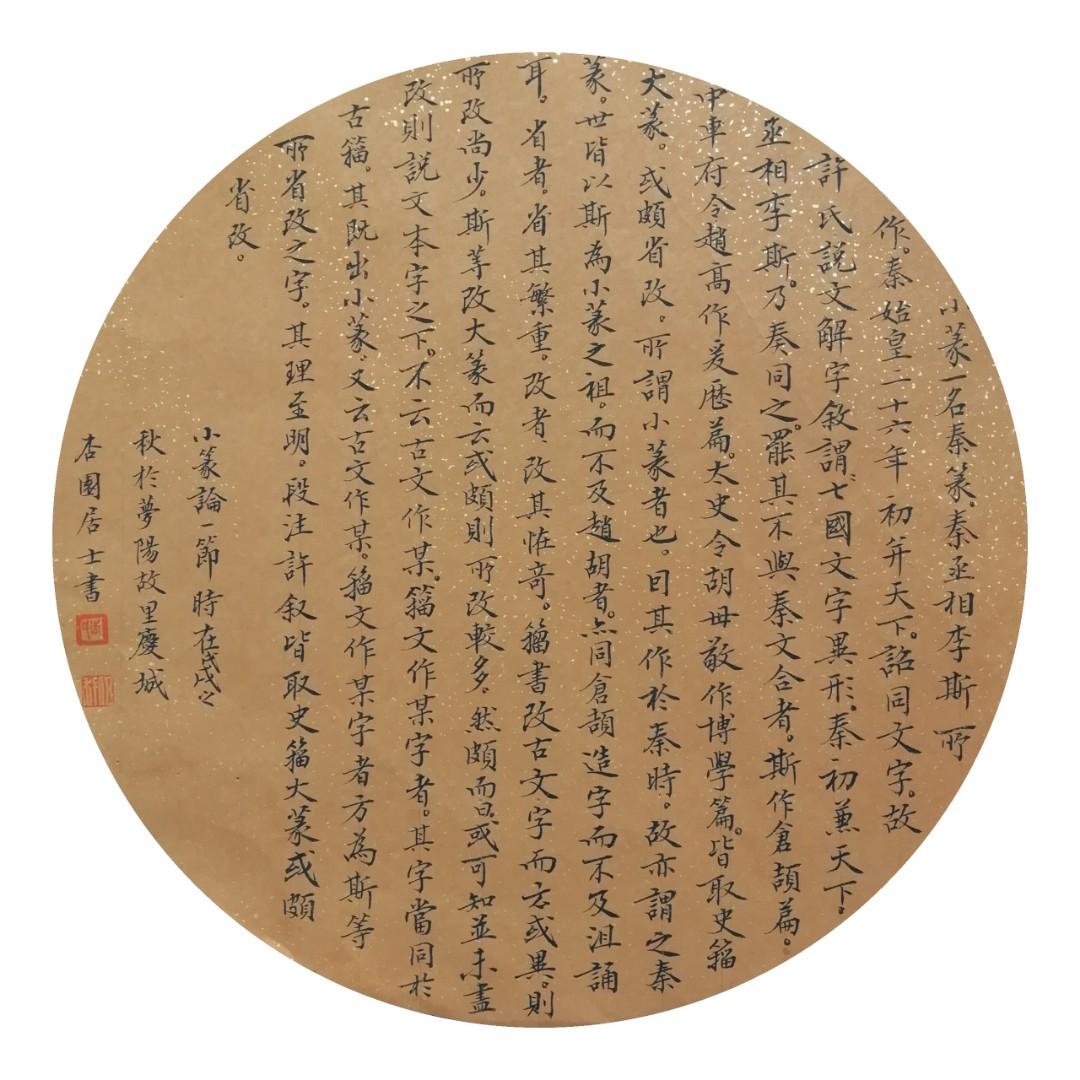 小篆一名秦篆。秦丞相李斯所
作。秦始皇二十六年初并天下。詔同文字。故
許氏說文解字敘謂。七國文字異形。秦初兼天下。
丞相李斯。乃奏同之。罷其不與秦文合者。斯作倉頡篇。
中車府令趙高作爰歷篇。太史令胡毋敬作博學篇。皆取史籀
大篆。或頗省改。所謂小篆者也。曰其作於秦時。故亦謂之秦
篆。世皆以斯為小篆之祖。而不及趙胡者。亦同倉頡造字而不及沮誦
耳。省者。省其繁重。改者、改其恠奇。籀書改古文字而云或異。則
所改尚少。斯等改大篆而云或頗則所改較多。然頗而曰或可知並未盡
改則說文本字之下。不云古文作某。籀文作某字者。其字當同於
古籀。其既出小篆、又云古文作某。籀文作某字者方為斯等
所省改之字。其理至明。段注許叙皆取史籀大篆或頗
省改。
小篆論一節時在戊戌之
秋於夢陽故里慶城
杏園居士書